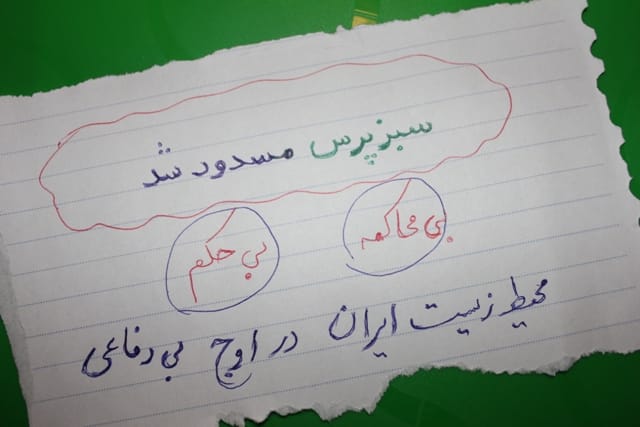 سبزپرس مسدود شد
بی محاکمه بی حکم
محیط زیست ایران در اوج بی دفاعی